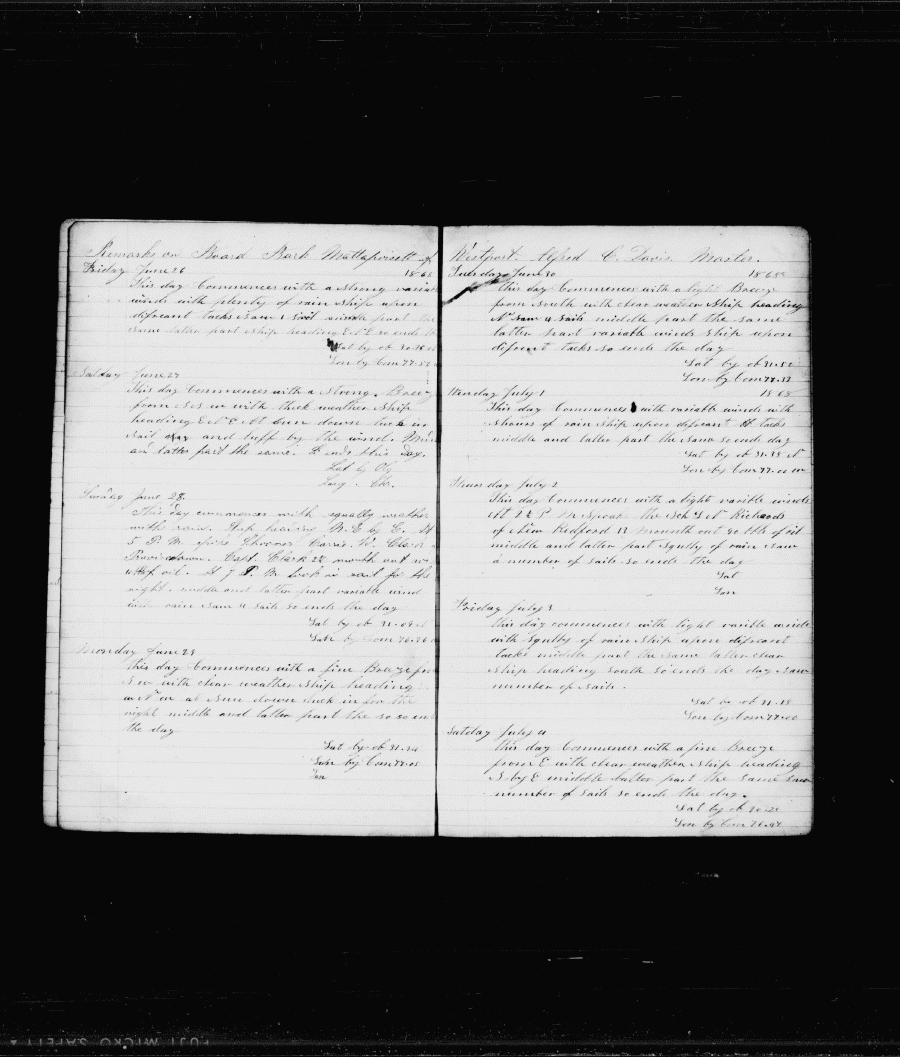 Remarks on Board Bark Mattapoisett of
Friday June 26 1868
This day Commences with a Strong variab
winds with plenty of rain Ship upon
difreant tacks Saw 1 Sail middle part the
Same latter part Ship heading E N E so ends
Lat by ob
Lon by Cron 77-52
Satday June 27
This day Commences with a Strong Breez
from S S W with thick weather Ship
heading E N E At Sun down tuck in
Sail and luff by the wind. Midd
an latter part the same. So ends this Day.
Lat by Ob
Long. Chr.
Sunday June 28.
This day commences with squally weather
with rain. Ship heading N. E by E. At
5 P. M. spoke Shooner Carrie W. Clark
Provincetown. Capt. Clark 2½ month out
of oil. At 7 P. M took in sail for the
night. middle and latter part variable wind
and rain Saw 4 Sails so ends the day
Lat by ob 31-08
Lon by Cron 76-26
Monday June 29
this day Commences with a fine Breeze from
S W with clear weather Ship heading
W N W at Sun down tuck in for the
night middle and latter part the so so ends
the day
Lat by ob 31-34
Lon by Cron 77-05
Lon
Westport. Alfred C. Davis Master.
Tuesday June 30 1868
this day Commences with a light Breeze
from South with clear weather Ship heading
N saw 4 Sails middle part the same
latter part variable winds Ship upon
difreant tacks so ends the day
Lat by ob 31-52
Lon by Cron 77-33
Wenday July 1 1868
This day Commences with variable winds with
Shours of rain Ship upon difreant tacks
middle and latter part the Same so ends day
Lat by ob 31-38 N
Lon by Cron 77-00 W
Thursday July 2
This day Commences with a light varible winds
At P M Spoak the Sch Et N Richards
of New Bedford 12 mounth out 90 bbls of oil
middle and latter part Squly of rain Saw
a number of Sails so ends the day
Lat
Lon
Friday July 3
this day commences with light varible winds
with Squlty of rain Ship upon difreant
tacks middle part the same latter clear
Ship heading South So ends the day Saw
number of Sails.
Lat by ob 31-18
Lon by Cron 77-00
Satday July 4
this day Commences with a fine Breeze
from E with clear weather Ship heading
S by E middle latter part the same saw
number of Sails so ends the day.
Lat by ob 30-21
Lon by Cron 76-47
FUJI MICRO SAFETY